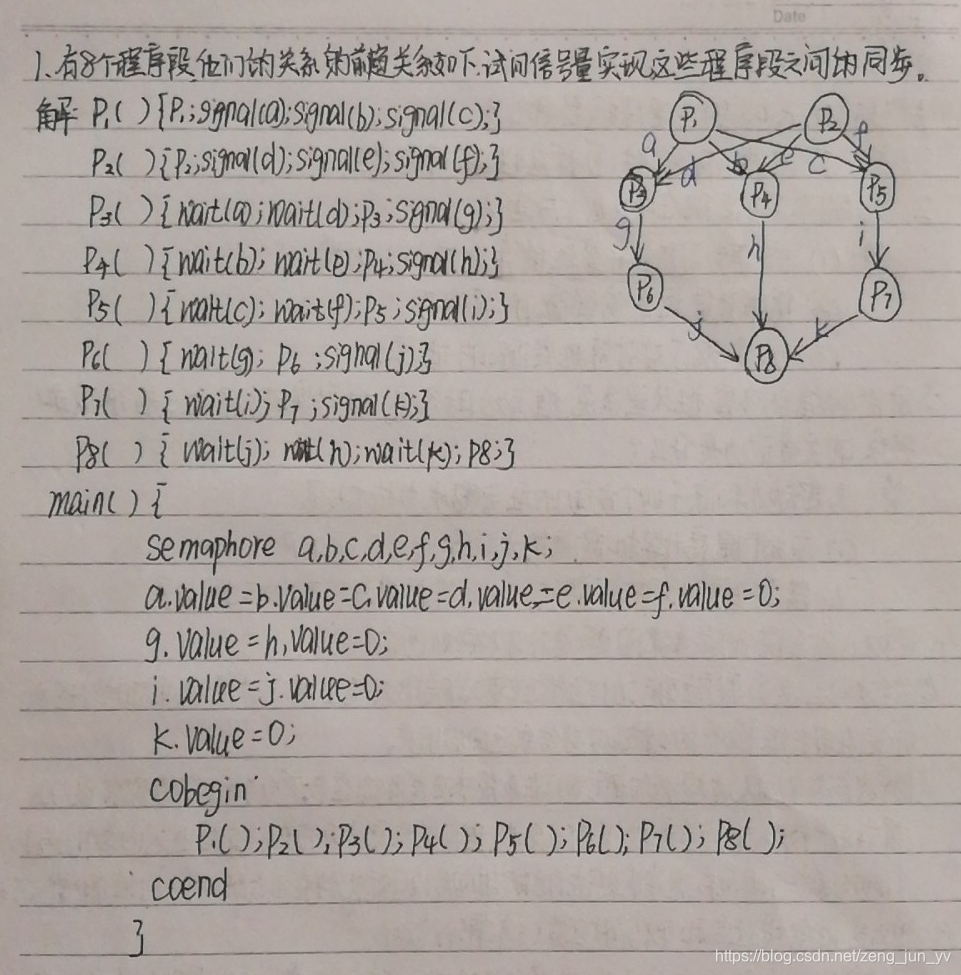 Date
1.有8个程序段他们的关系的前趋关系如下.试问信号量实现这些程序段之间的同步。
解: P1( ){P1;signal(a);signal(b);signal(c);}
P2( ){P2;signal(d);signal(e);signal(f);}
P3( ){wait(a);wait(d);P3;signal(g);}
P4( ){wait(b);wait(e);P4;signal(h);}
P5( ){wait(c);wait(f);P5;signal(i);}
P6( ){wait(g);P6;signal(j)}
P7( ){wait(i);P7;signal(k);}
P8( ){wait(j);wait(h);wait(k);P8;}
P1 P2
a d b e c f
P3 P4 P5
g h i
P6 P7
j k
P8
main( ){
semaphore a,b,c,d,e,f,g,h,i,j,k;
a.value=b.value=c.value=d.value=e.value=f.value=0;
g.value=h.value=0;
i.value=j.value=0;
k.value=0;
cobegin
P1( );P2( );P3( );P4( );P5( );P6( );P7( );P8( );
coend
}
https://blog.csdn.net/zeng_jun_yv